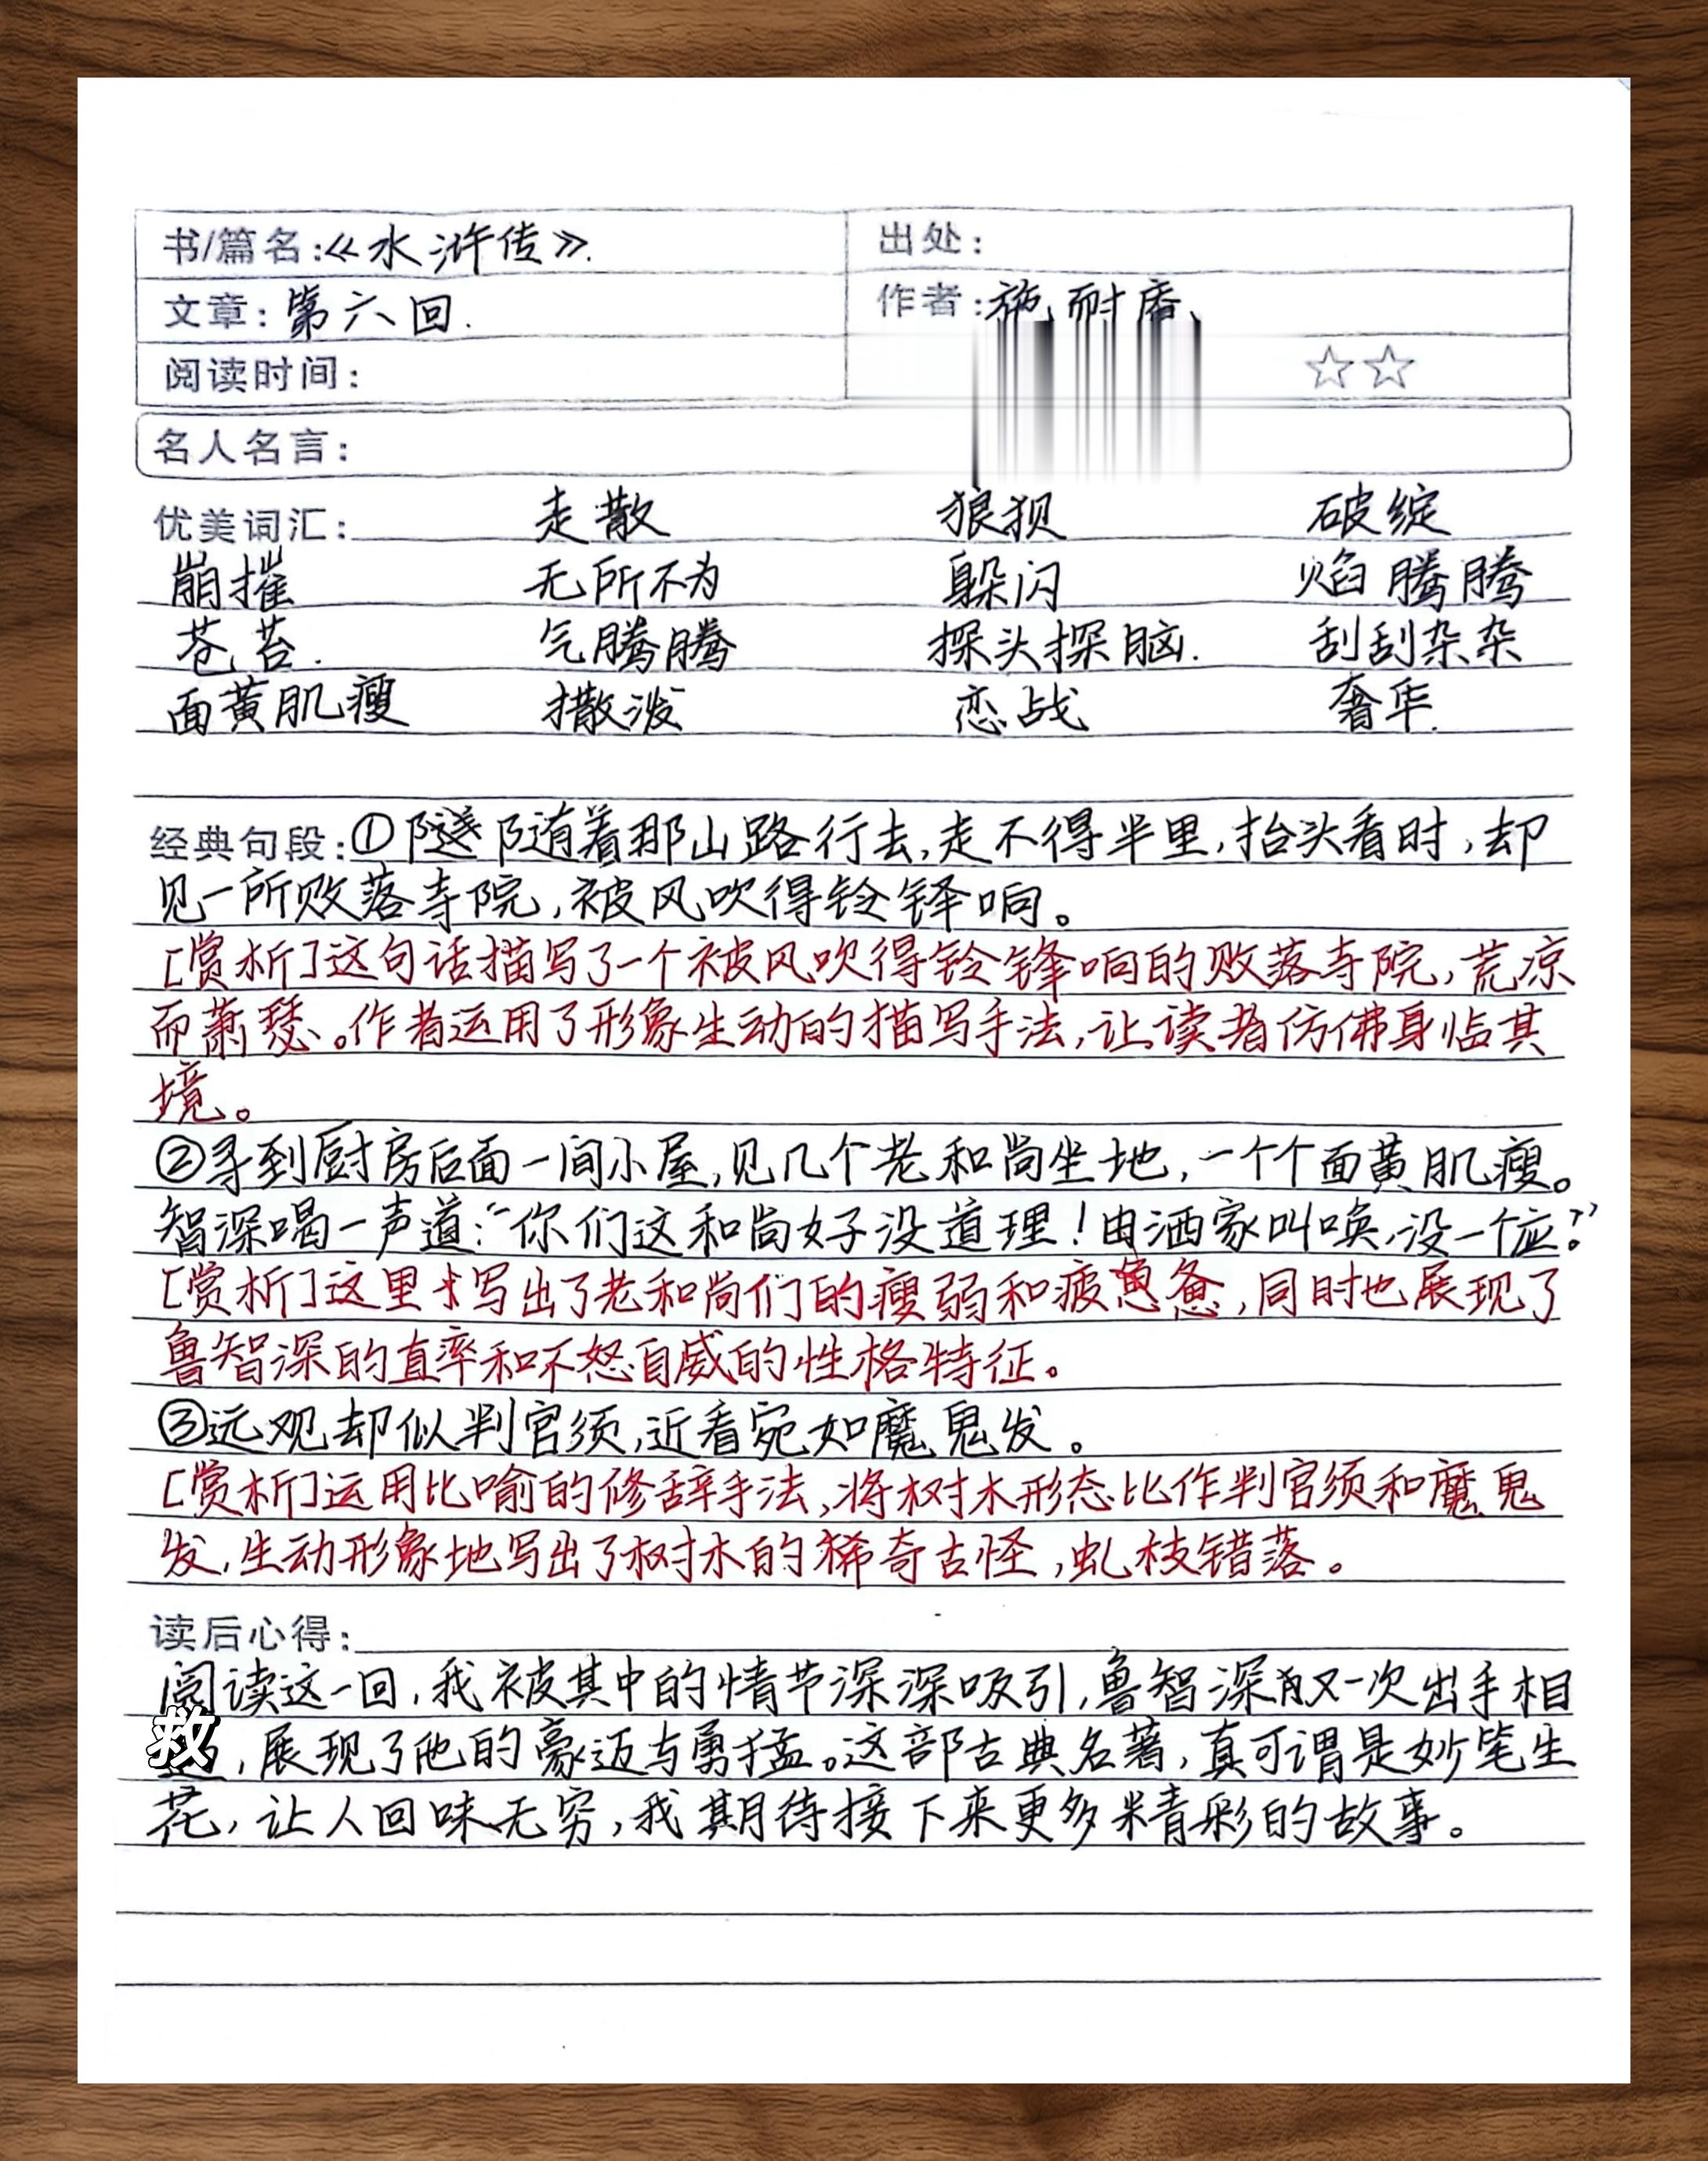 书/篇名:《水浒传》. 出处:
文章: 第六回. 作者: 施耐庵
阅读时间: ☆☆
名人名言:
优美词汇: 走散 狼狈 破绽
崩摧 无所不为 躲闪 焰腾腾
苍苔. 气腾腾 探头探脑. 刮刮杂杂
面黄肌瘦 撒泼 恋战 奢华.
经典句段:①随着那山路行去,走不得半里,抬头看时,却
见一所败落寺院,被风吹得铃铎响。
[赏析]这句话描写了一个被风吹得铃锋响的败落寺院,荒凉
而萧瑟。作者运用了形象生动的描写手法,让读者仿佛身临其
境。
②寻到厨房后面一间小屋,见几个老和尚坐地,一个个面黄肌瘦。
智深喝一声道:“你们这和尚好没道理!由洒家叫唤,没一个应?”
[赏析]这里写出了老和尚们的瘦弱和疲惫,同时也展现了
鲁智深的直率和不怒自威的性格特征。
③远观却似判官须,近看宛如魔鬼发。
[赏析]运用比喻的修辞手法,将树木形态比作判官须和魔鬼
发,生动形象地写出了树木的稀奇古怪,虬枝错落。
读后心得:
阅读这一回,我被其中的情节深深吸引,鲁智深又一次出手相
救,展现了他的豪迈与勇猛。这部古典名著,真可谓是妙笔生
花,让人回味无穷,我期待接下来更多精彩的故事。